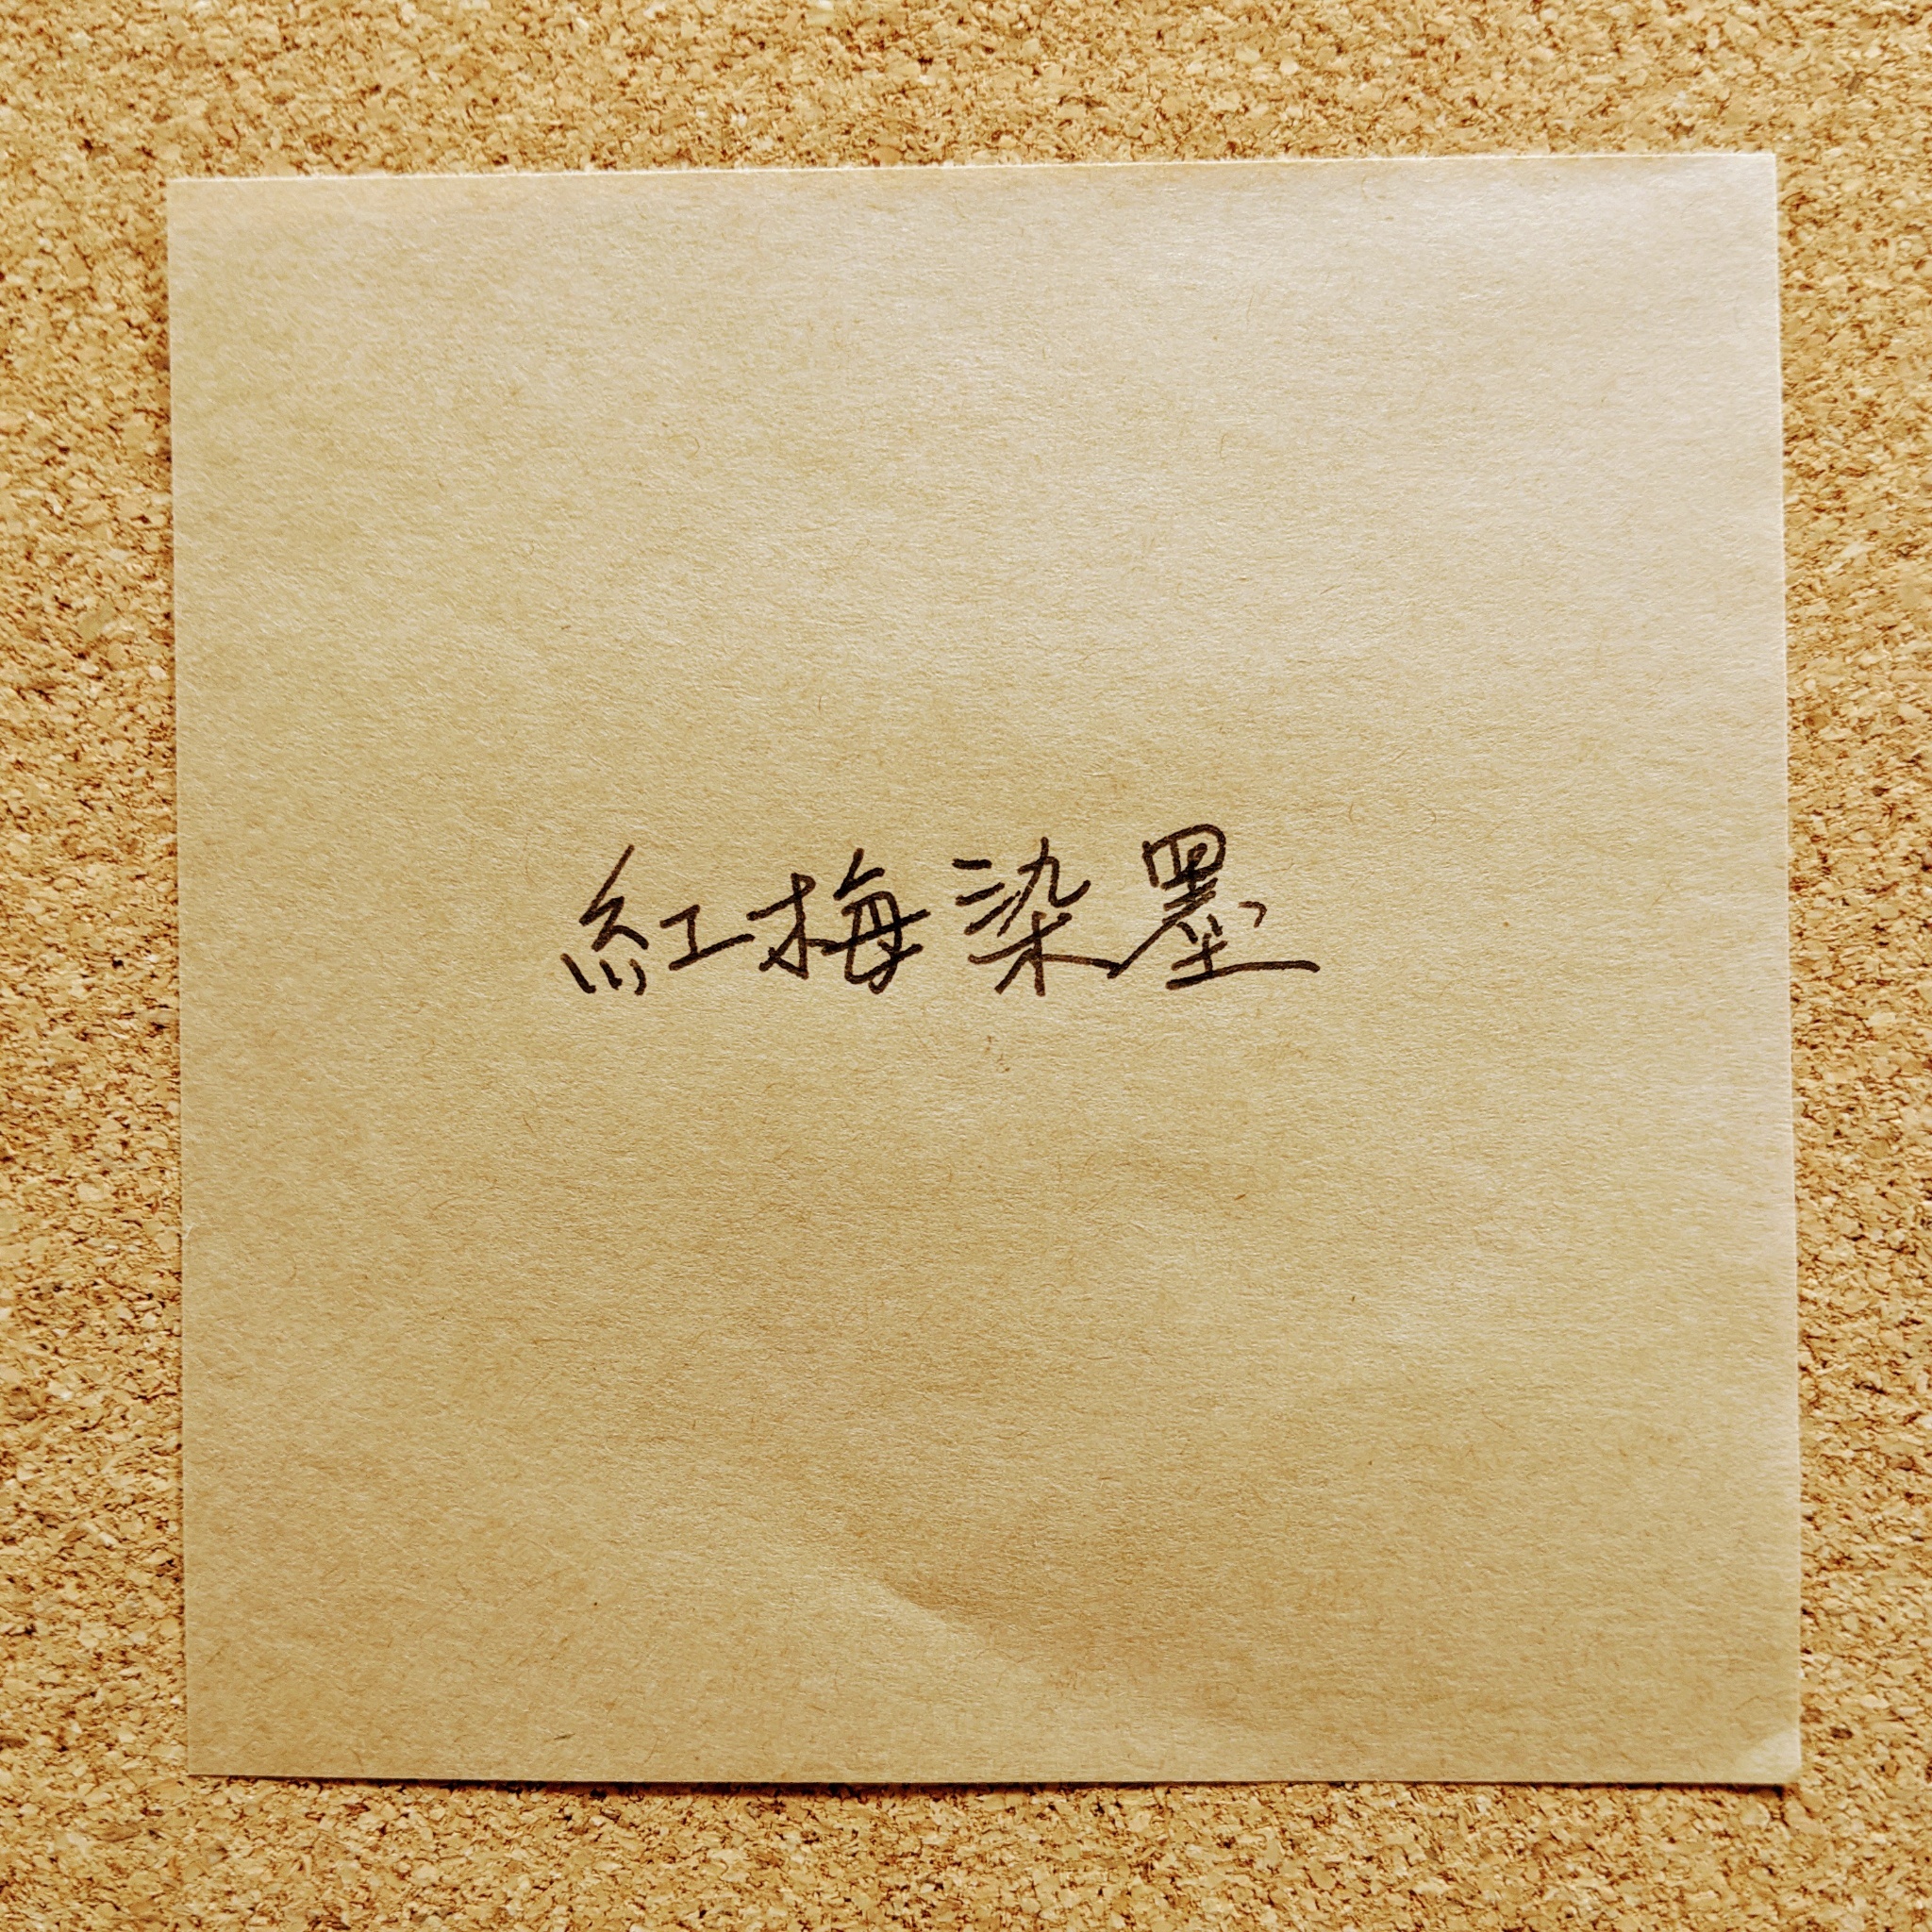 紅梅染墨